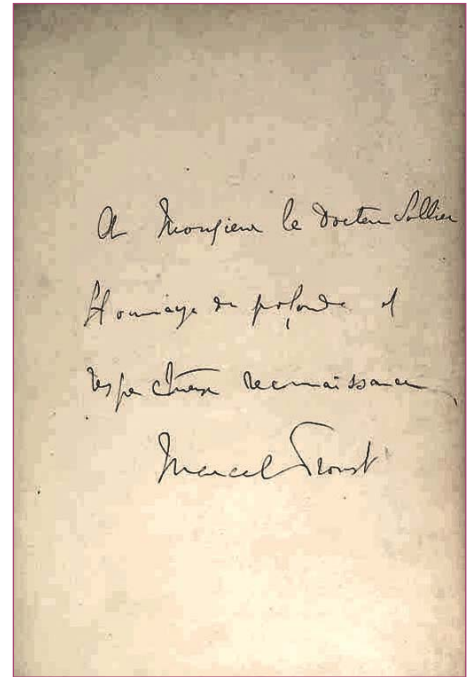 A Monsieur le Docteur Sollier
Hommage de profonde et
respectueuse reconnaissance
Marcel Proust